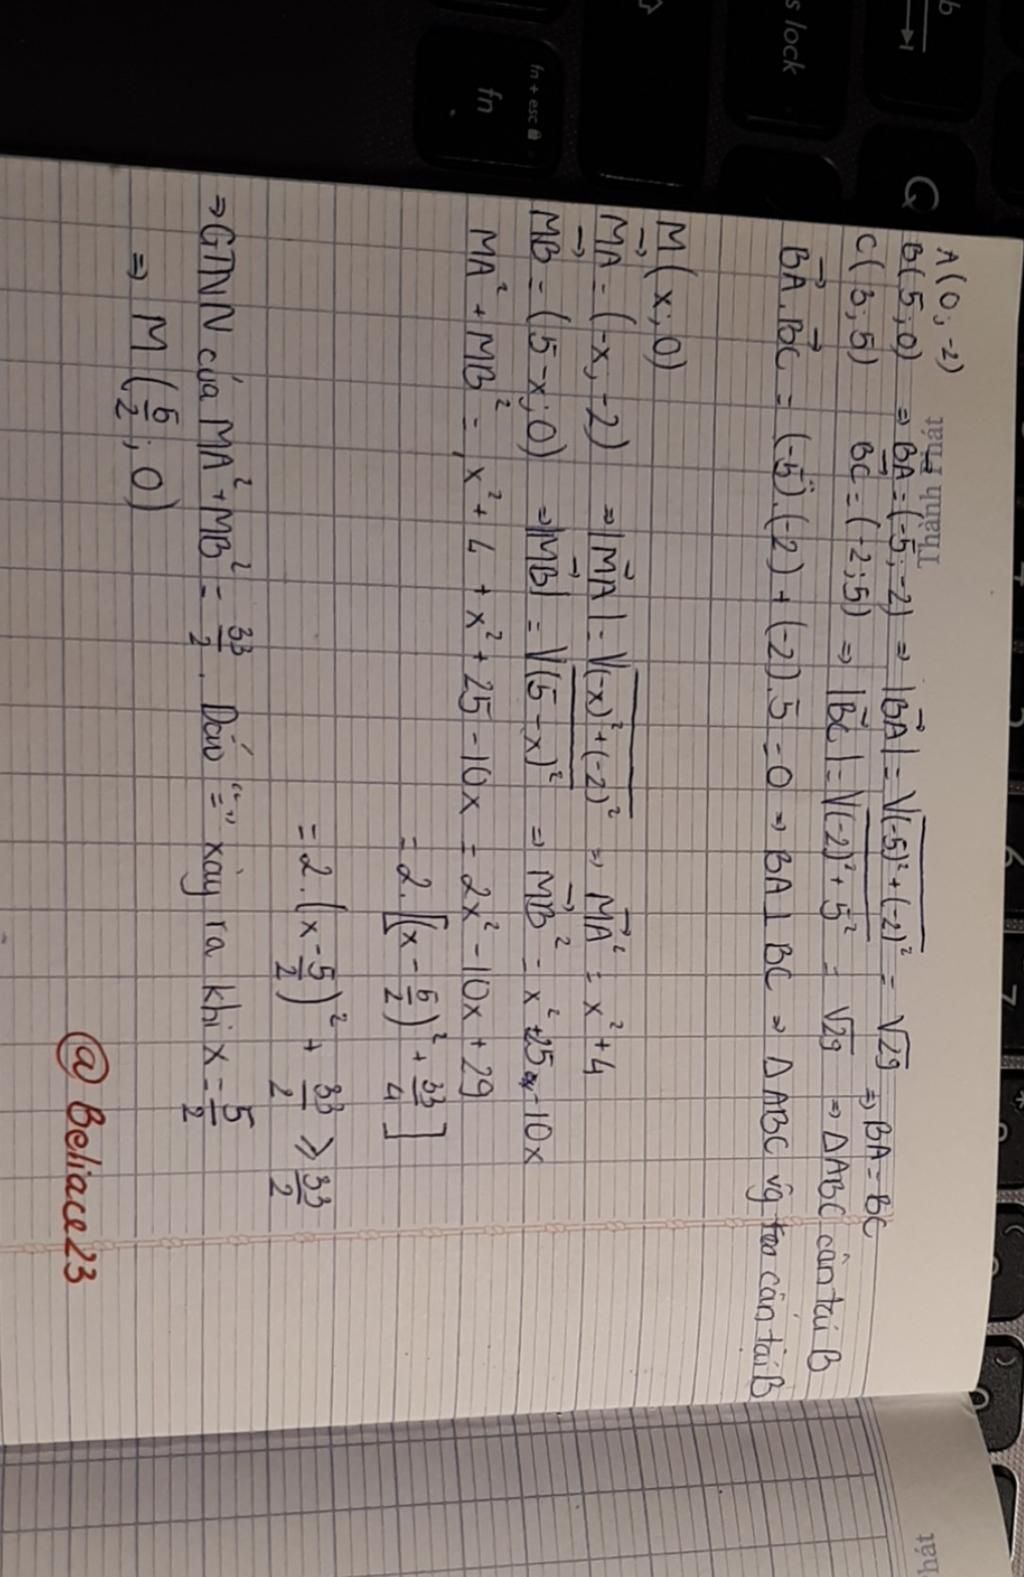 A(0;-2)
Thành Phát
B(5;0) ⇒ BA→ = (-5;-2) ⇒ |BA→| = √((-5)²+(-2)²) = √29 ⇒ BA = BC
C(3;5) BC→ = (-2;5) ⇒ |BC→| = √((-2)²+5²) = √29 ⇒ ΔABC cân tại B
BA→.BC→ = (-5).(-2)+(-2).5 = 0 ⇒ BA⊥BC ⇒ ΔABC vg cân tại B
M(x;0)
MA→ = (-x;-2) ⇒ |MA→| = √((-x)²+(-2)²) ⇒ MA→² = x²+4
MB→ = (5-x;0) ⇒ |MB→| = √((5-x)²) ⇒ MB→² = x²+25-10x
MA²+MB² = x²+4+x²+25-10x = 2x²-10x+29
= 2.[(x-5/2)²+33/4]
= 2.(x-5/2)²+33/2 ≥ 33/2
⇒ GTNN của MA²+MB² = 33/2. Dấu "=" xảy ra khi x = 5/2
⇒ M(5/2;0)
@Beliace23
fn + esc
fn
s lock
Q
b
hát